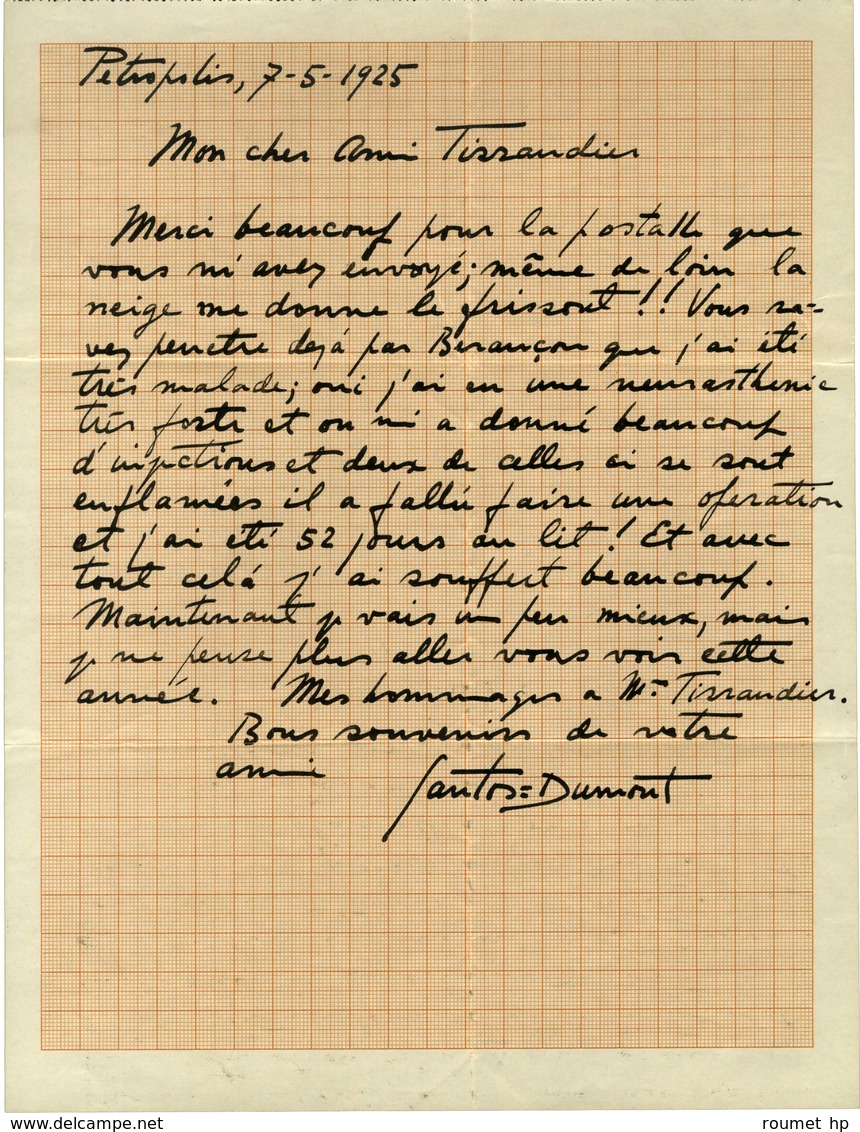 Petropolis, 7-5-1925
Mon cher Ami Tissandier
Merci beaucoup pour la postalle que
vous m'avez envoyé; même de loin la
neige me donne le frissont!! Vous sa-
vez peuctre dejá par Besançon que j'ai été
trés malade; oui j'ai eu une neurasthenie
trés forte et on m'a donné beaucoup
d'injections et deux de celles ci se sont
enflamées il a fallú faire une operation
et j'ai eté 52 jours au lit! Et avec
tout celá j'ai souffert beaucoup.
Maintenant je vais un peu mieux, mais
je ne pense plus aller vous voir cette
année. Mes hommages a Mme Tissandier.
Bous souvenirs de votre
amie
Santos=Dumont
Delcampe.net
roumet hp